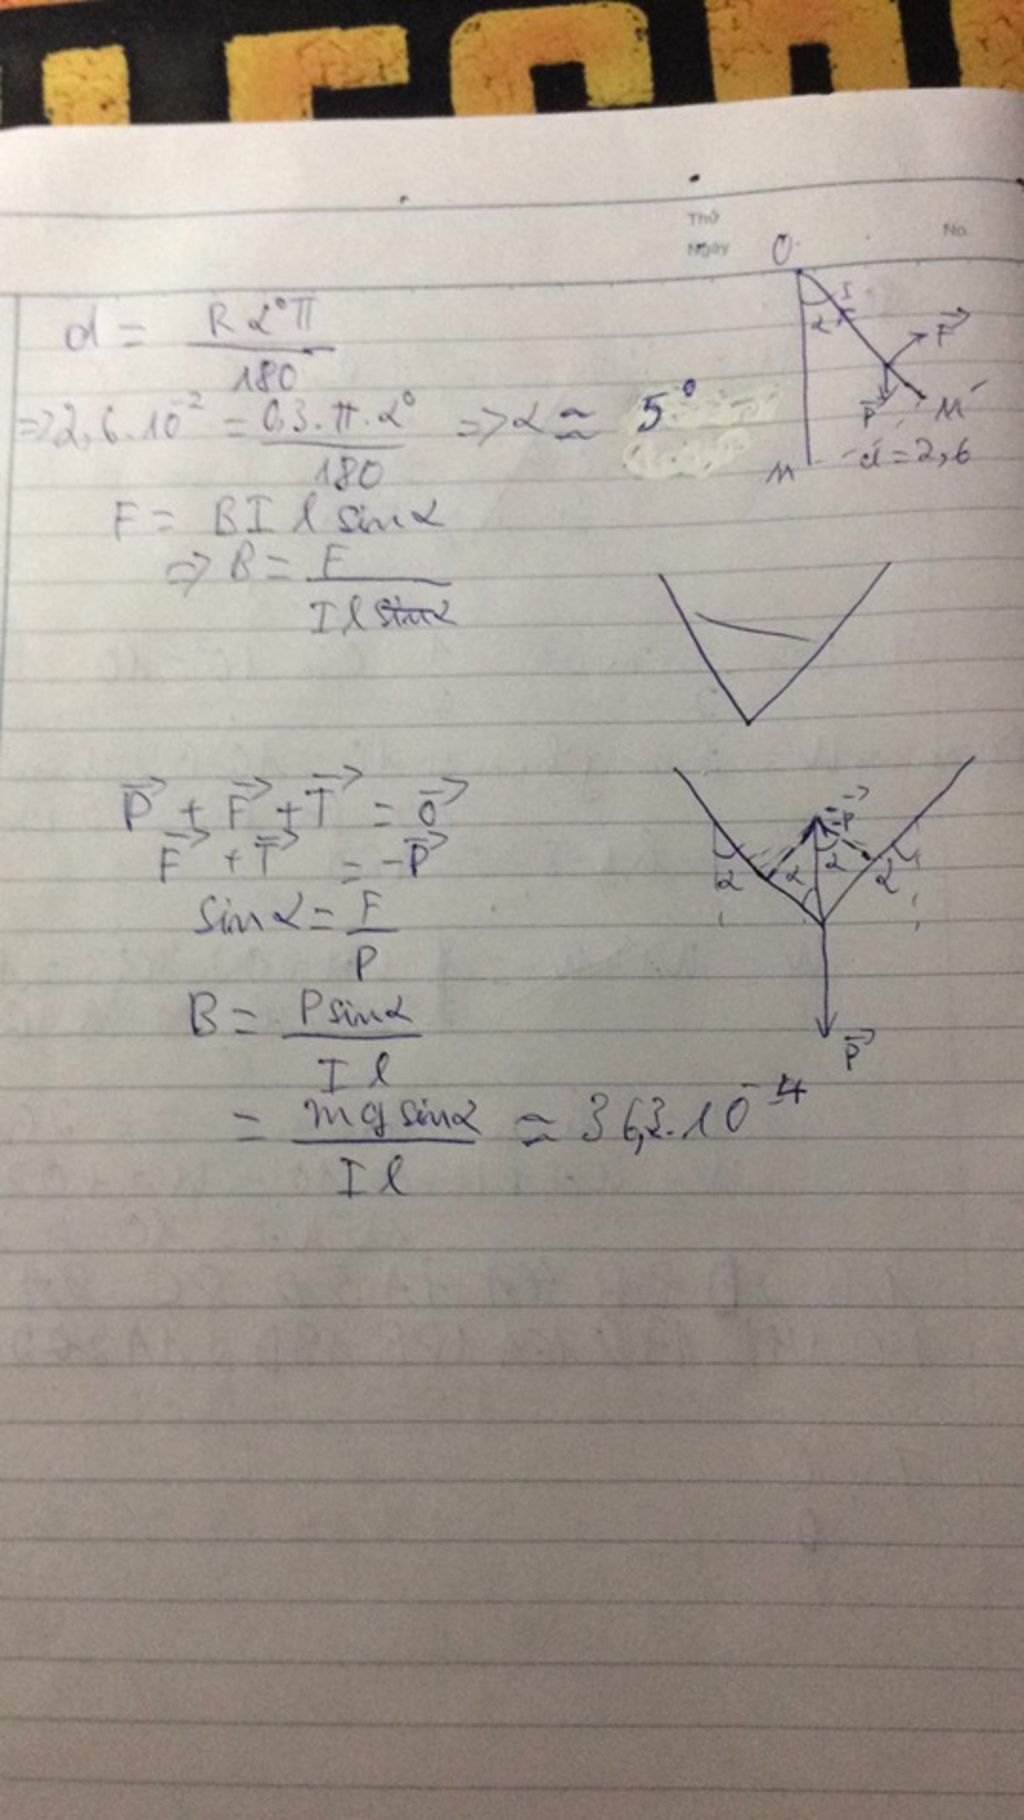 Thứ
Ngày
No.
d = Rα°π / 180
=> 2,6.10⁻² = 0,3.π.α° / 180 => α ≈ 5°
F = BIl sinα
=> B = F / Il sinα
O
I
α
F→
P→
M'
M
d = 2,6
P→ + F→ + T→ = 0→
F→ + T→ = -P→
sinα = F / P
B = Psinα / Il
= mg sinα / Il ≈ 36,3.10⁻⁴
-P→
α
α
α
α
P→